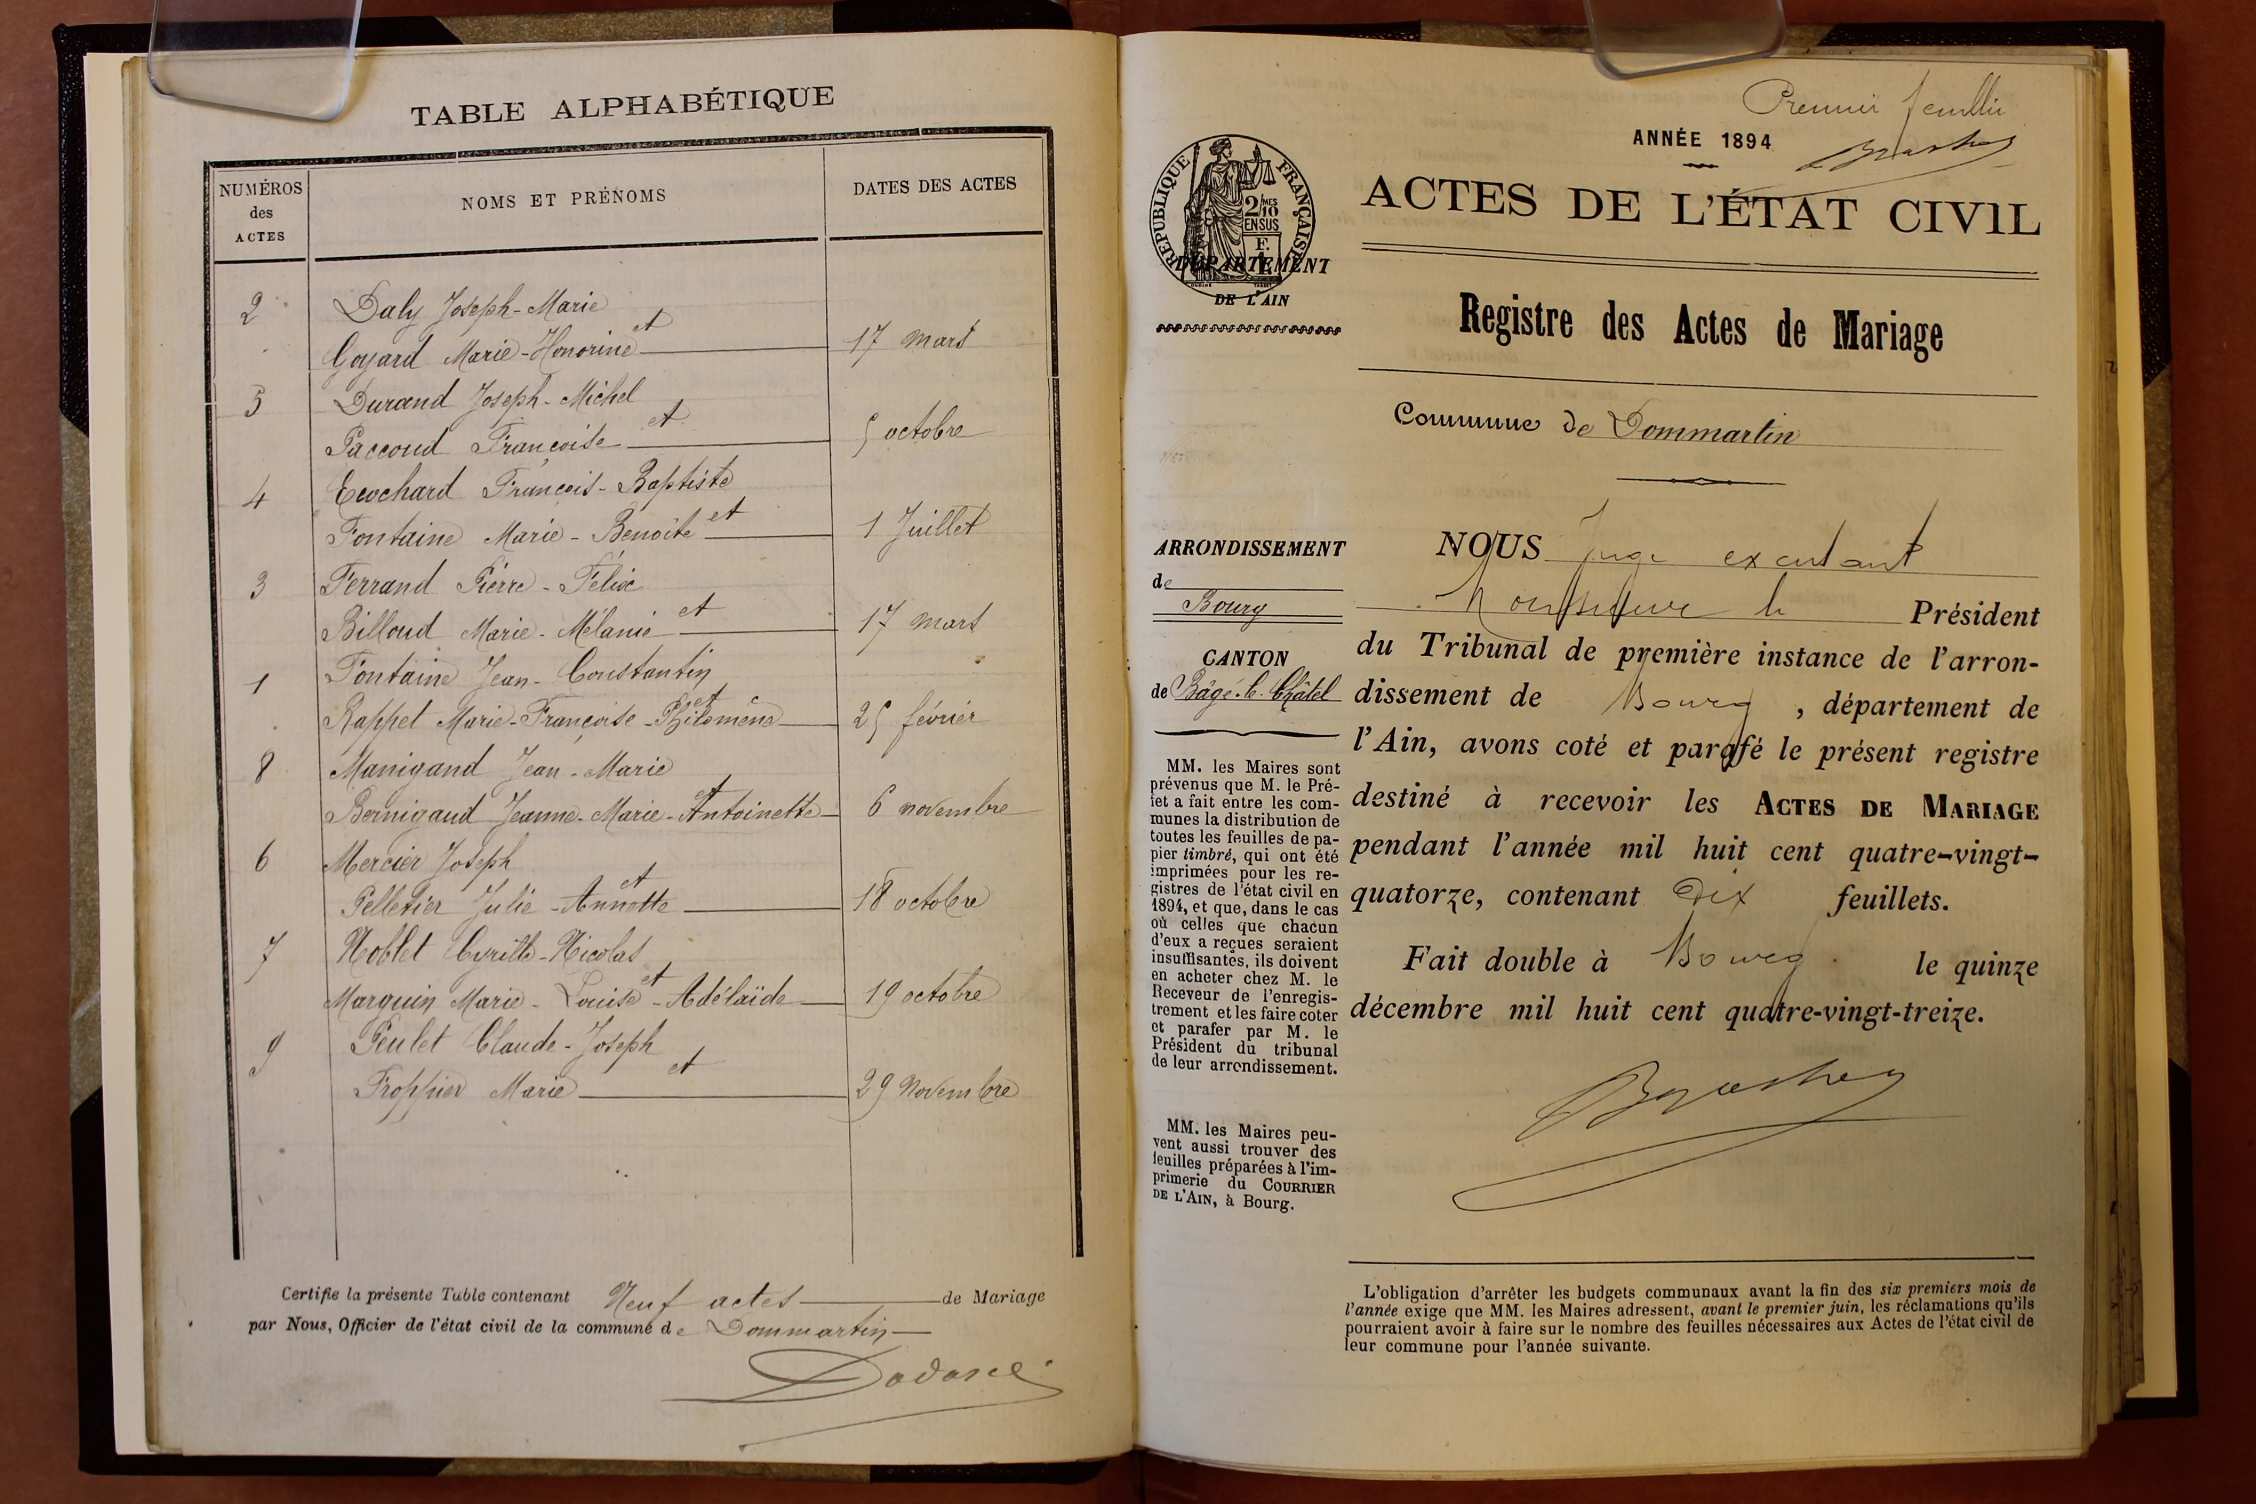 TABLE ALPHABÉTIQUE
NUMÉROS des ACTES
NOMS ET PRÉNOMS
DATES DES ACTES
2 Daly Joseph-Marie
et
Goyard Marie-Honorine 17 mars
5 Durand Joseph-Michel
et
Paccoud Françoise 5 octobre
4 Ecochard François-Baptiste
et
Fontaine Marie-Benoîte 1 Juillet
3 Ferrand Pierre-Félix
et
Billoud Marie-Mélanie 17 mars
1 Fontaine Jean-Constantin
et
Rappet Marie-Françoise-Philomène 25 février
8 Manigand Jean-Marie
et
Bernigaud Jeanne-Marie-Antoinette 6 novembre
6 Mercier Joseph
et
Pelletier Julie-Annette 18 octobre
7 Noblet Cyrille-Nicolas
et
Marguin Marie-Louise-Adélaïde 19 octobre
9 Peulet Claude-Joseph
et
Froppier Marie 29 Novembre
Certifie la présente Table contenant Neuf actes de Mariage
par Nous, Officier de l'état civil de la commune de Dommartin
Premier feuillet
ANNÉE 1894
RÉPUBLIQUE FRANÇAISE
2/10 MES
EN SUS
F.
DÉPARTEMENT
DE L'AIN
ACTES DE L'ÉTAT CIVIL
Registre des Actes de Mariage
Commune de Dommartin
ARRONDISSEMENT
de
Bourg
CANTON
de Bâgé-le-Châtel
MM. les Maires sont
prévenus que M. le Pré-
fet a fait entre les com-
munes la distribution de
toutes les feuilles de pa-
pier timbré, qui ont été
imprimées pour les re-
gistres de l'état civil en
1894, et que, dans le cas
où celles que chacun
d'eux a reçues seraient
insuffisantes, ils doivent
en acheter chez M. le
Receveur de l'enregis-
trement et les faire coter
et parafer par M. le
Président du tribunal
de leur arrondissement.
MM. les Maires peu-
vent aussi trouver des
feuilles préparées à l'im-
primerie du COURRIER
DE L'AIN, à Bourg.
NOUS Juge
le Président
du Tribunal de première instance de l'arron-
dissement de Bourg, département de
l'Ain, avons coté et parafé le présent registre
destiné à recevoir les ACTES DE MARIAGE
pendant l'année mil huit cent quatre-vingt-
quatorze, contenant Dix feuillets.
Fait double à Bourg le quinze
décembre mil huit cent quatre-vingt-treize.
L'obligation d'arrêter les budgets communaux avant la fin des six premiers mois de
l'année exige que MM. les Maires adressent, avant le premier juin, les réclamations qu'ils
pourraient avoir à faire sur le nombre des feuilles nécessaires aux Actes de l'état civil de
leur commune pour l'année suivante.